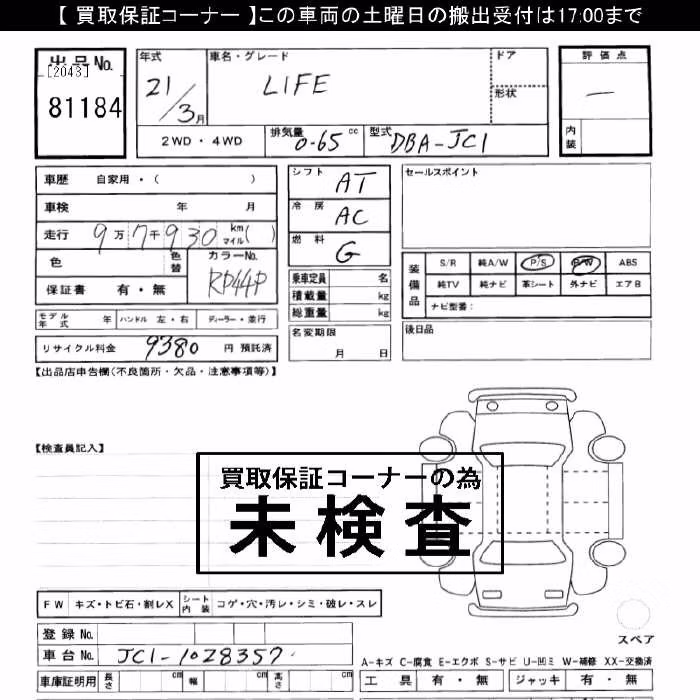 【 買取保証コーナー 】この車両の土曜日の搬出受付は17:00まで
出品No.
[2043]
81184
年式
21/3月
車名・グレード
LIFE
ドア
形状
評価点
—
内装
2WD・4WD
排気量
0.65 cc
型式
DBA-JC1
車歴 自家用・( )
車検 年 月
走行 9万7千930 km マイル( )
色 色替
カラーNo.
RP44P
保証書 有・無
モデル年式 年 ハンドル 左・右 ディーラー・並行
リサイクル料金 9380 円 預託済
シフト AT
冷房 AC
燃料 G
乗車定員 名
積載量 kg
総重量 kg
名変期限
月 日
セールスポイント
装備品
S/R 純A/W P/S P/W ABS
純TV 純ナビ 革シート 外ナビ エアB
ナビ型番:
後日品
【出品店申告欄(不良箇所・欠品・注意事項等)】
【検査員記入】
買取保証コーナーの為
未検査
FW キズ・トビ石・割レX シート内装 コゲ・穴・汚レ・シミ・破レ・スレ
登録No.
車台No. JC1-1028357
車庫証明用 長さ cm 幅 cm 高さ cm
スペア
A-キズ C-腐食 E-エクボ S-サビ U-凹ミ W-補修 XX-交換済
工具 有・無 ジャッキ 有・無